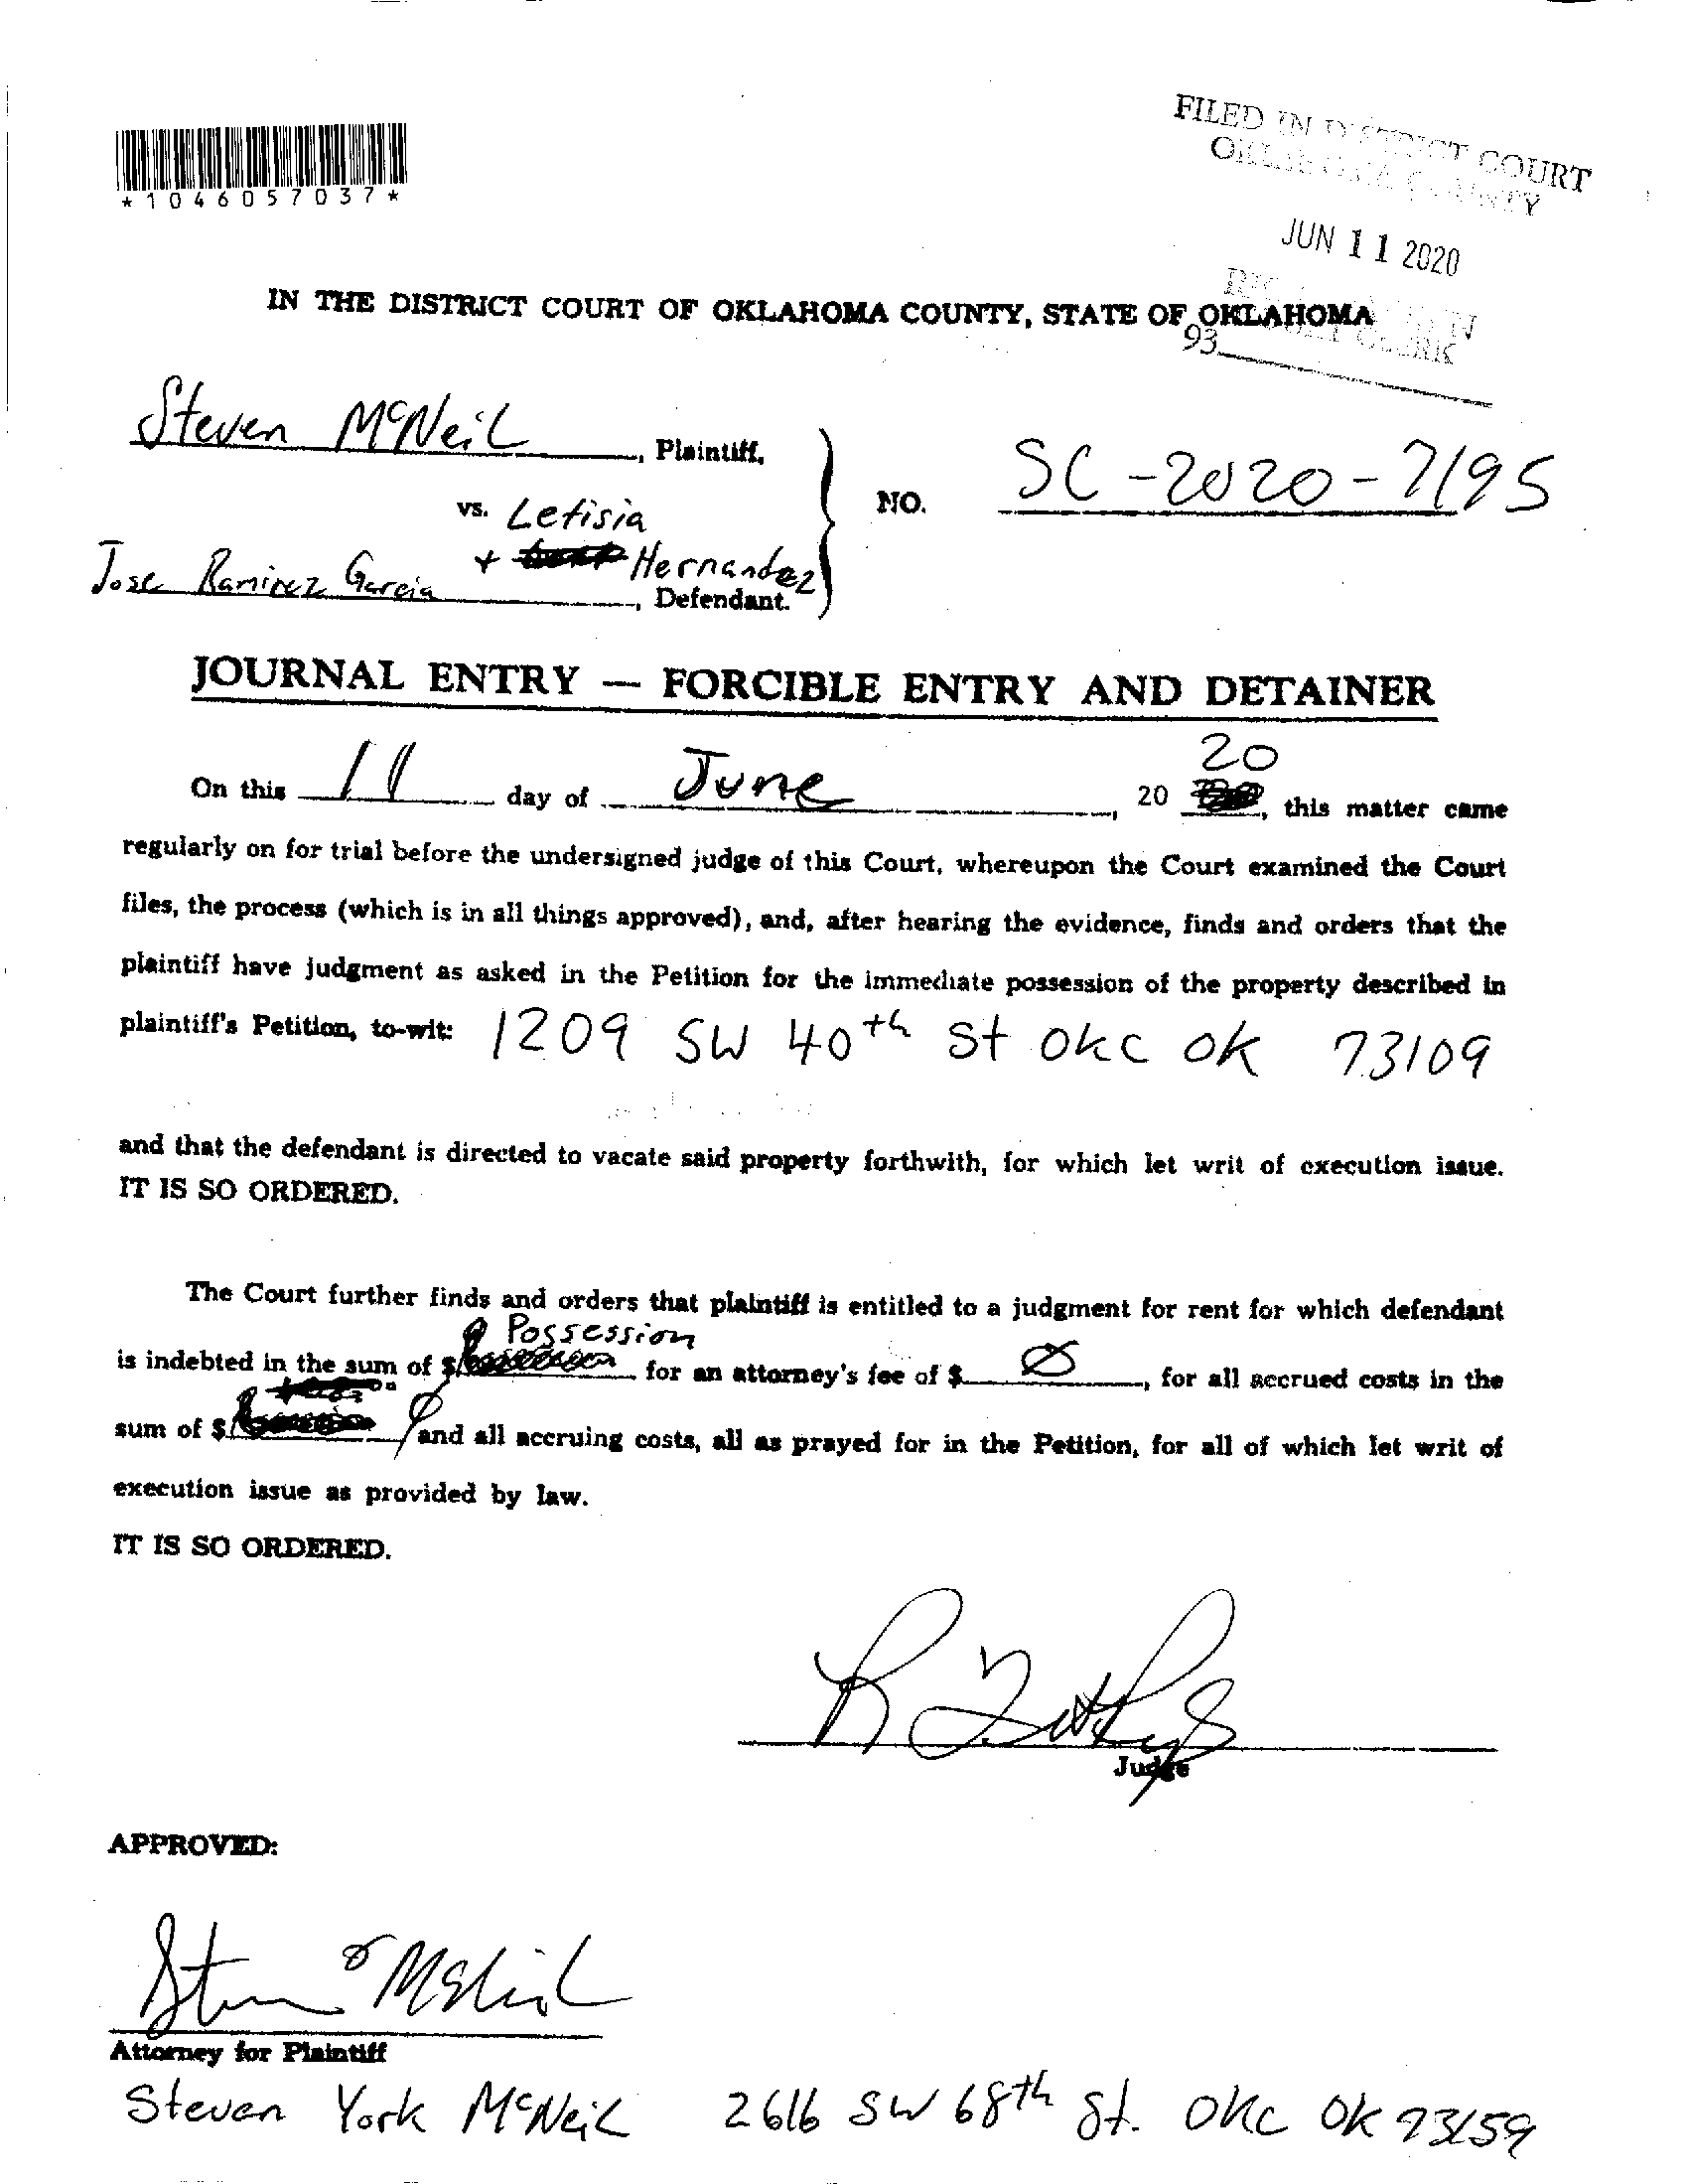 FILED IN DISTRICT COURT
OKLAHOMA COUNTY
JUN 11 2020
*1046057037*
IN THE DISTRICT COURT OF OKLAHOMA COUNTY, STATE OF OKLAHOMA
COURT CLERK
93
Steven McNeil, Plaintiff,
vs. Letisia
+ Hernandez
Jose Ramirez Garcia, Defendant.
NO. SC-2020-7195
JOURNAL ENTRY — FORCIBLE ENTRY AND DETAINER
20
On this 11 day of June, 20, this matter came
regularly on for trial before the undersigned judge of this Court, whereupon the Court examined the Court
files, the process (which is in all things approved), and, after hearing the evidence, finds and orders that the
plaintiff have judgment as asked in the Petition for the immediate possession of the property described in
plaintiff's Petition, to-wit: 1209 SW 40th St OKC OK 73109
and that the defendant is directed to vacate said property forthwith, for which let writ of execution issue.
IT IS SO ORDERED.
The Court further finds and orders that plaintiff is entitled to a judgment for rent for which defendant
Possession
is indebted in the sum of $ for an attorney's fee of $ Ø, for all accrued costs in the
sum of $ and all accruing costs, all as prayed for in the Petition, for all of which let writ of
execution issue as provided by law.
IT IS SO ORDERED.
Judge
APPROVED:
Attorney for Plaintiff
Steven York McNeil 2616 SW 68th St. OKC OK 73159